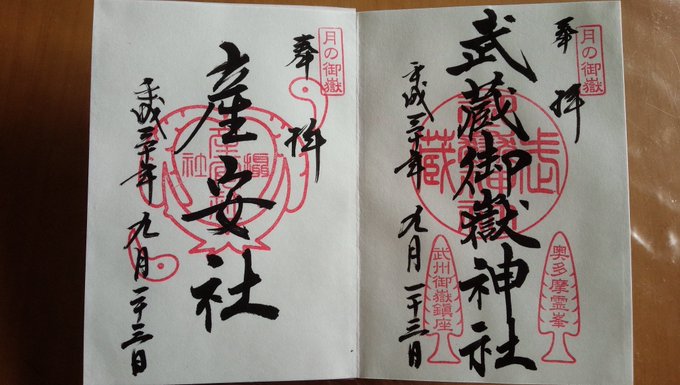 月の御嶽
奉拝
武蔵御嶽神社
平成三十年九月二十三日
武蔵
奥多摩霊峯
武州御嶽鎮座
月の御嶽
奉拝
産安社
平成三十年九月二十三日